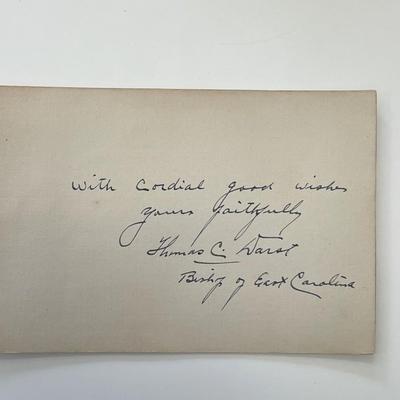 With Cordial good wishes
yours faithfully
Thomas C. Darst
Bishop of East Carolina